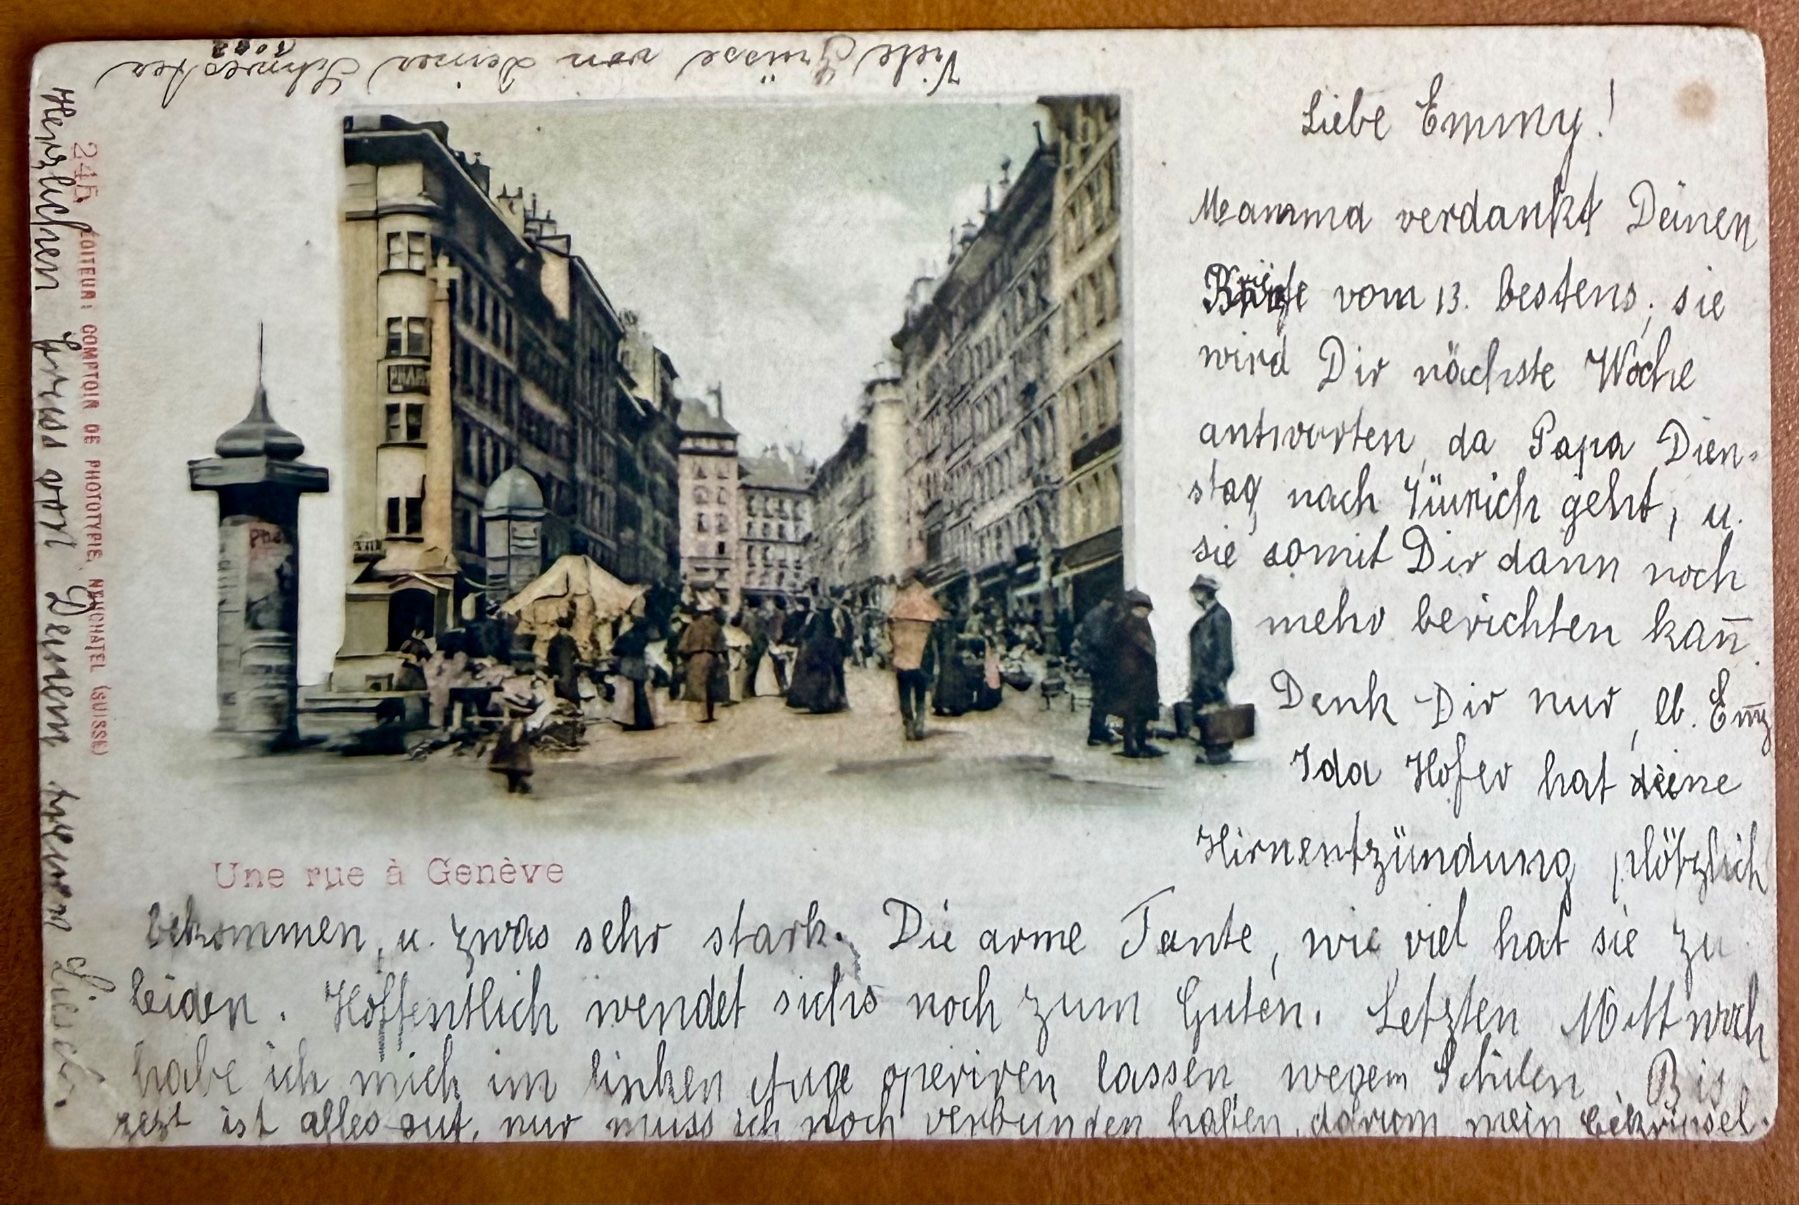 Viele Grüsse von Deiner Schwester
Liebe Emmy!
Mamma verdankt Deinen
Briefe vom 13. bestens; sie
wird Dir nächste Woche
antworten, da Papa Dien-
stag, nach Züurich geht, u.
sie somit Dir dann noch
mehr berichten kan̄.
Denk Dir nur, lb. Em̄y
Ida Hofer hat eine
Hirnentzündung plötzlich
bekommen, u. zwas sehr stark. Die arme Tante, wie viel hat sie zu
leiden. Hoffentlich wendet sichs noch zum Guten. Letzten Mittwoch
habe ich mich im linken Auge operiren lassen wegem Schilen. Bis
jezt ist alles gut, nur muss ich noch verbunden haben, darum mein Gekrüsel.
Herzlichen Gruss von Deinem treuen
245 ÉDITEUR: COMPTOIR DE PHOTOTYPIE, NEUCHATEL (SUISSE)
PHAR
Une rue à Genève